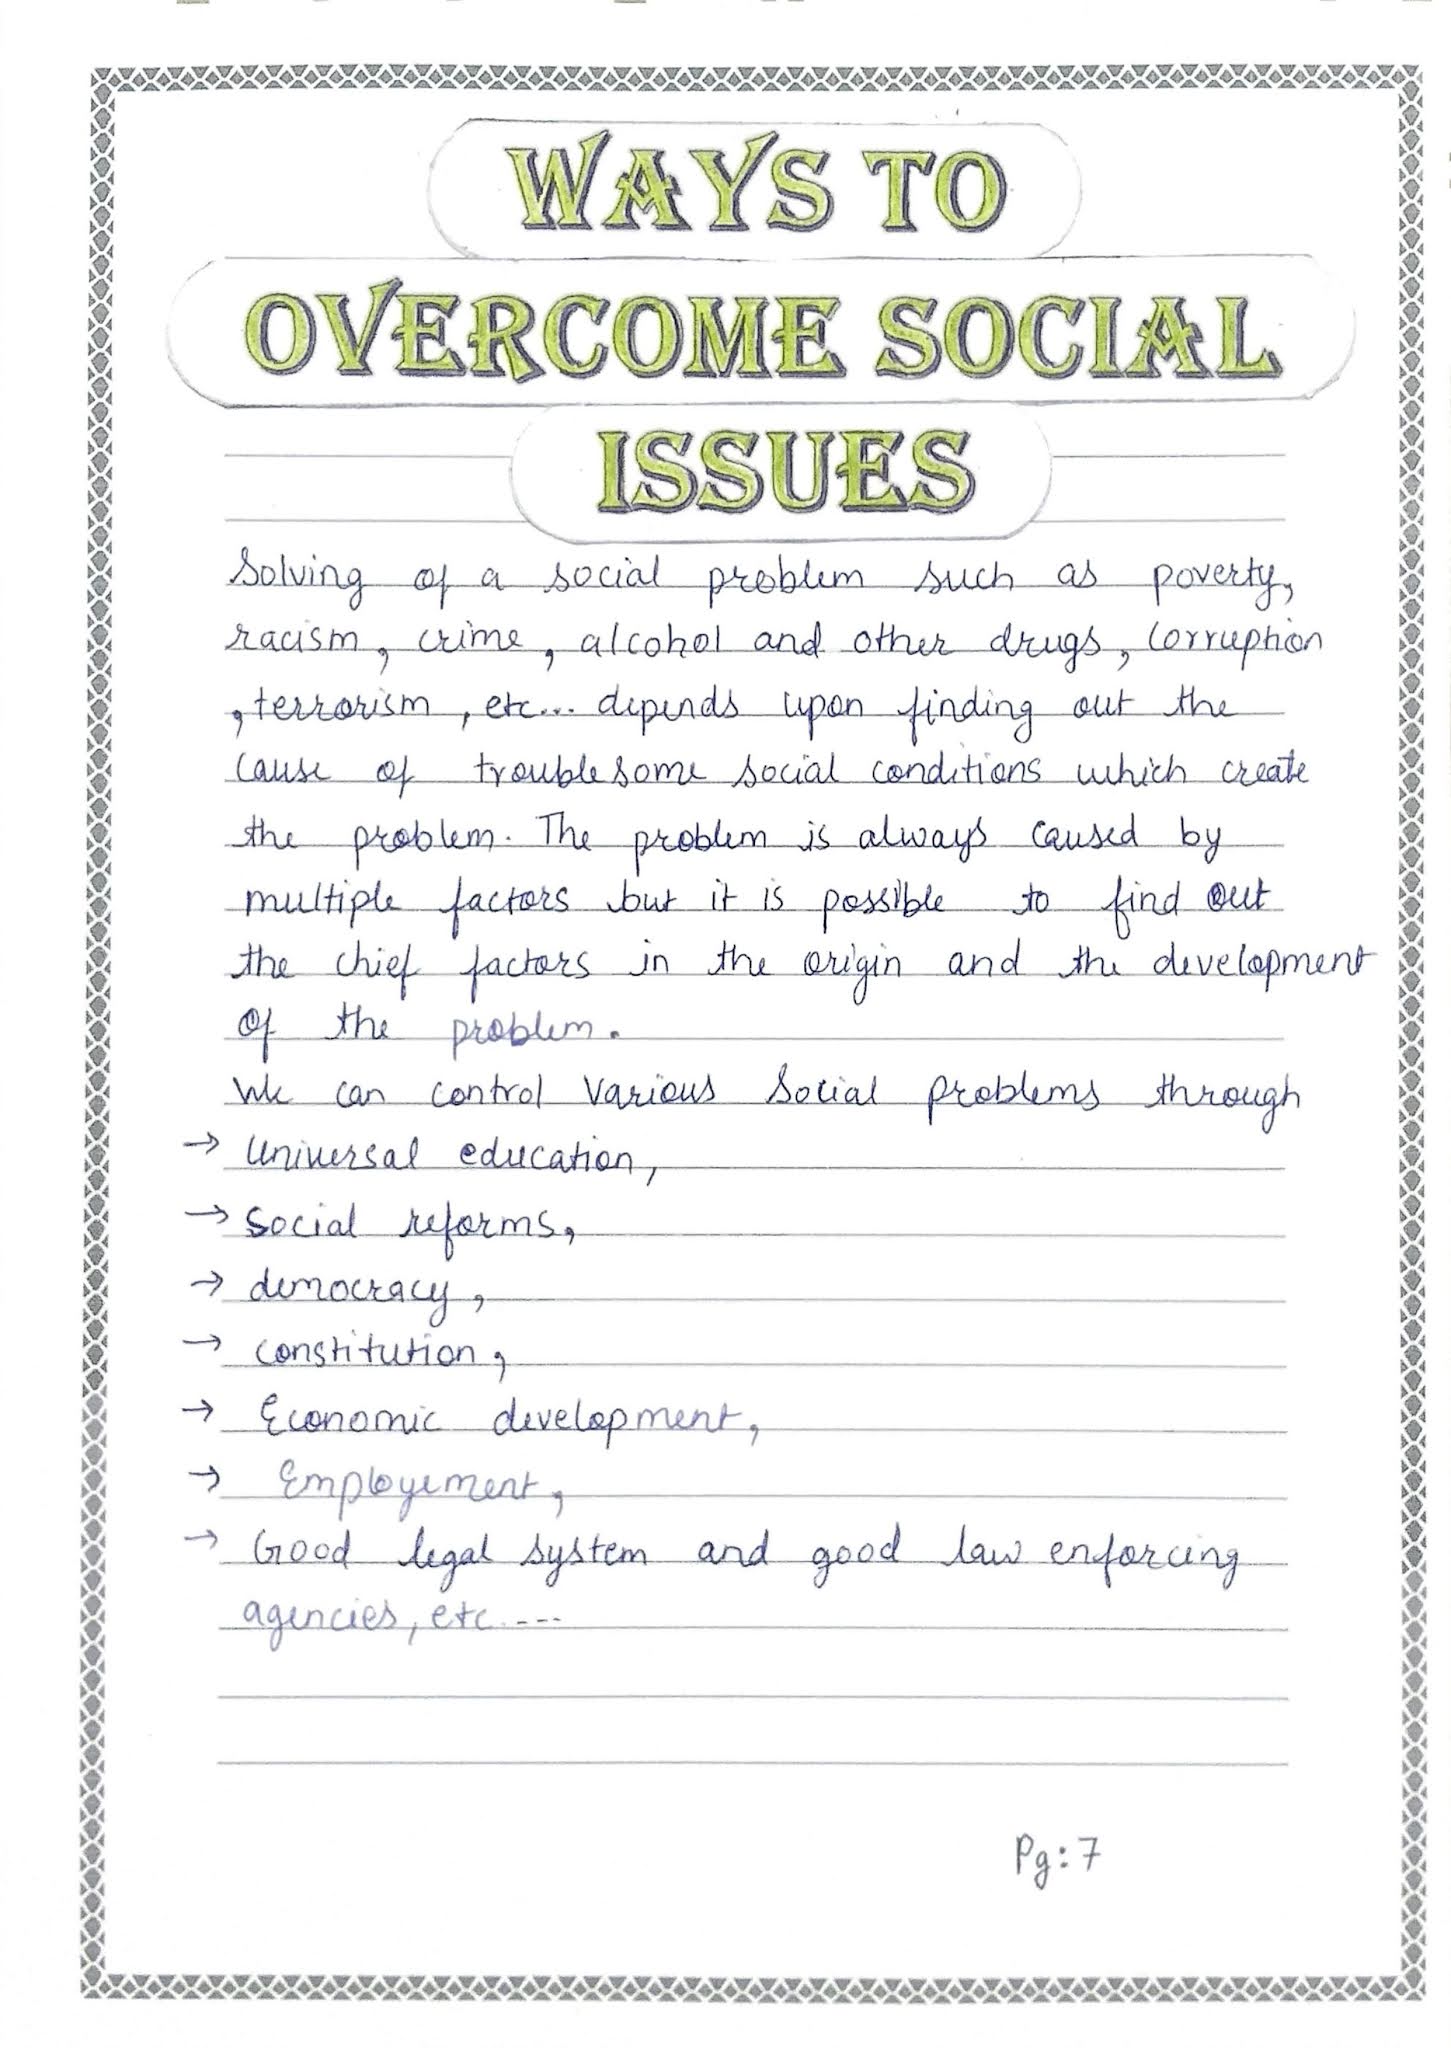 WAYS TO
OVERCOME SOCIAL
ISSUES
Solving of a social problem such as poverty,
racism, crime, alcohol and other drugs, corruption
, terrorism, etc... depends upon finding out the
cause of troublesome social conditions which create
the problem. The problem is always caused by
multiple factors but it is possible to find out
the chief factors in the origin and the development
of the problem.
We can control various social problems through
→ Universal education,
→ social reforms,
→ democracy,
→ constitution,
→ Economic development,
→ Employement,
→ Good legal system and good law enforcing
agencies, etc. ---
Pg: 7